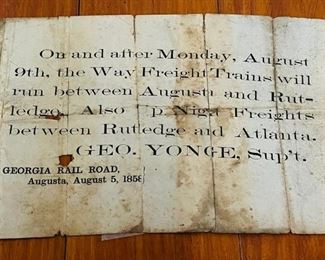 On and after Monday, August
9th, the Way Freight Trains will
run between Augusta and Rut-
ledge. Also Up Night Freights
between Rutledge and Atlanta.
GEO. YONGE, Sup't.
GEORGIA RAIL ROAD,
Augusta, August 5, 1858